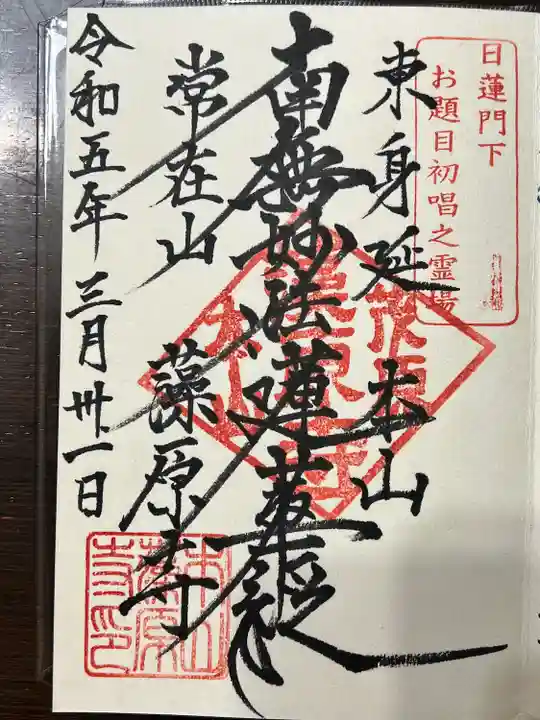 日蓮門下
お題目初唱之霊場
東身延 本山
南無妙法蓮華経
常在山 藻原寺
令和五年三月卅一日
本山
藻原
寺印